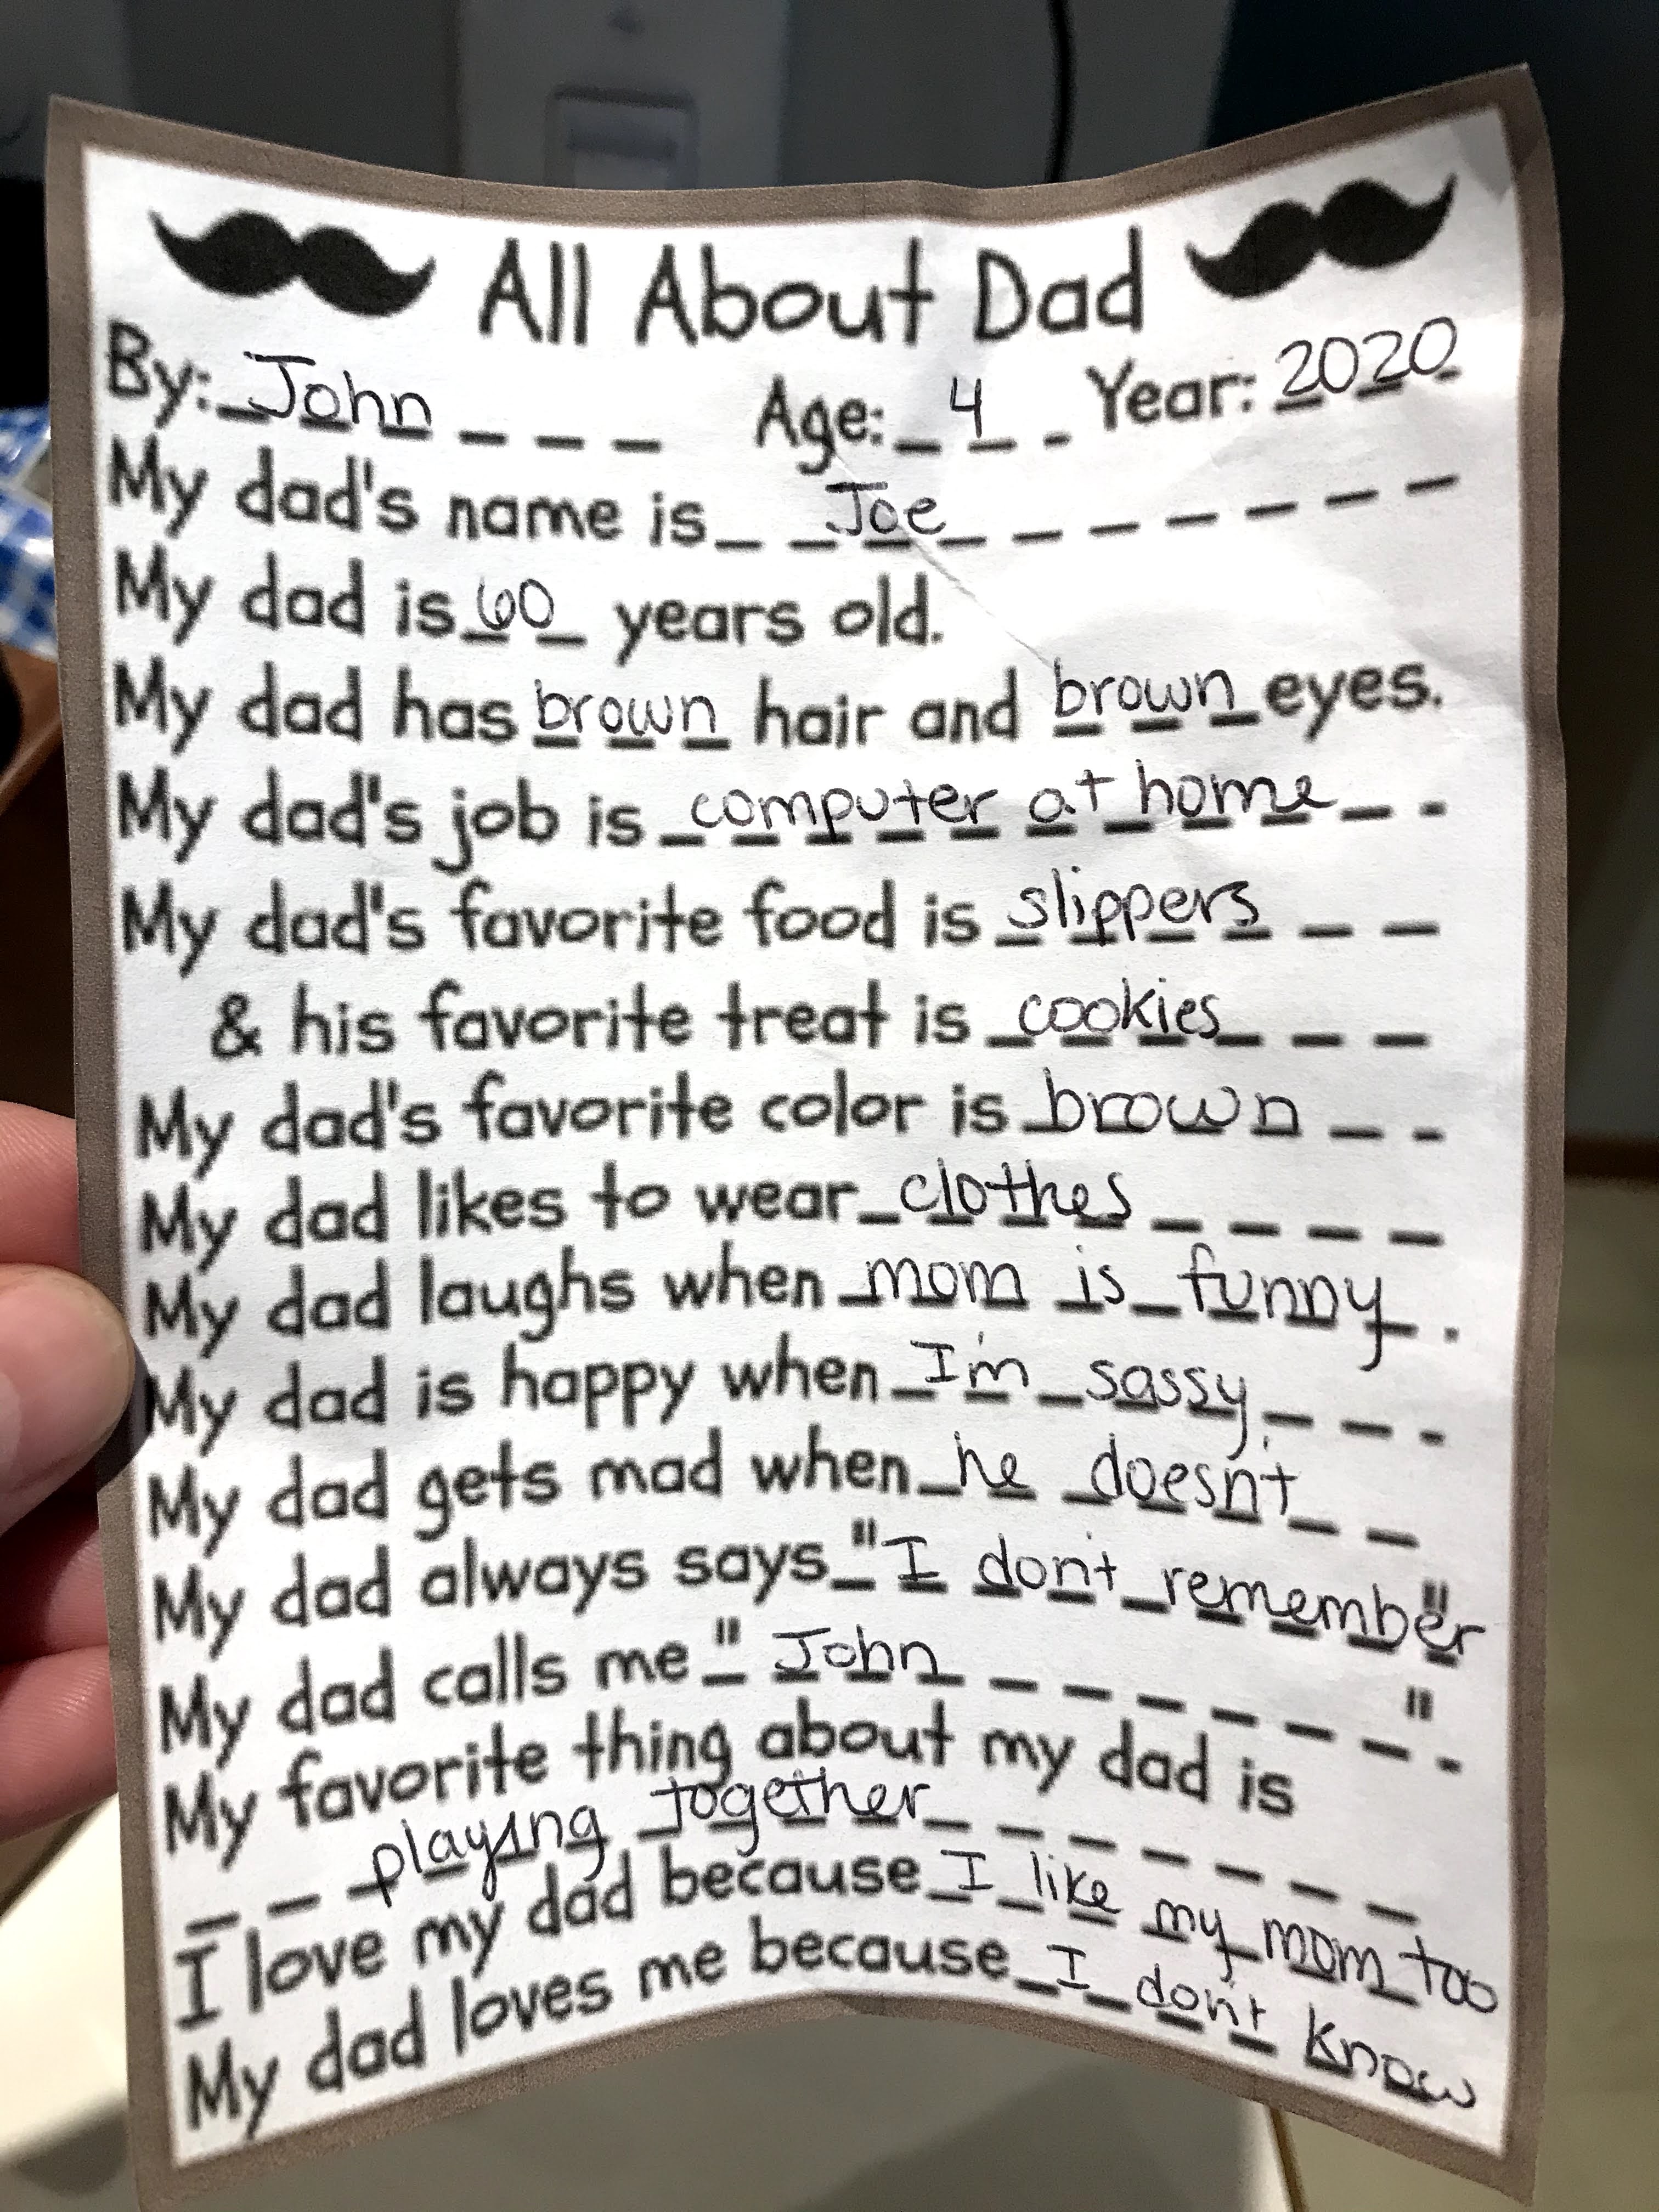 All About Dad
By: John Age: 4 Year: 2020
My dad's name is Joe
My dad is 60 years old.
My dad has brown hair and brown eyes.
My dad's job is computer at home
My dad's favorite food is slippers
& his favorite treat is cookies
My dad's favorite color is brown
My dad likes to wear clothes
My dad laughs when mom is funny.
My dad is happy when I'm sassy
My dad gets mad when he doesn't
My dad always says "I don't remember"
My dad calls me "John"
My favorite thing about my dad is
playing together
I love my dad because I like my mom too
My dad loves me because I don't know